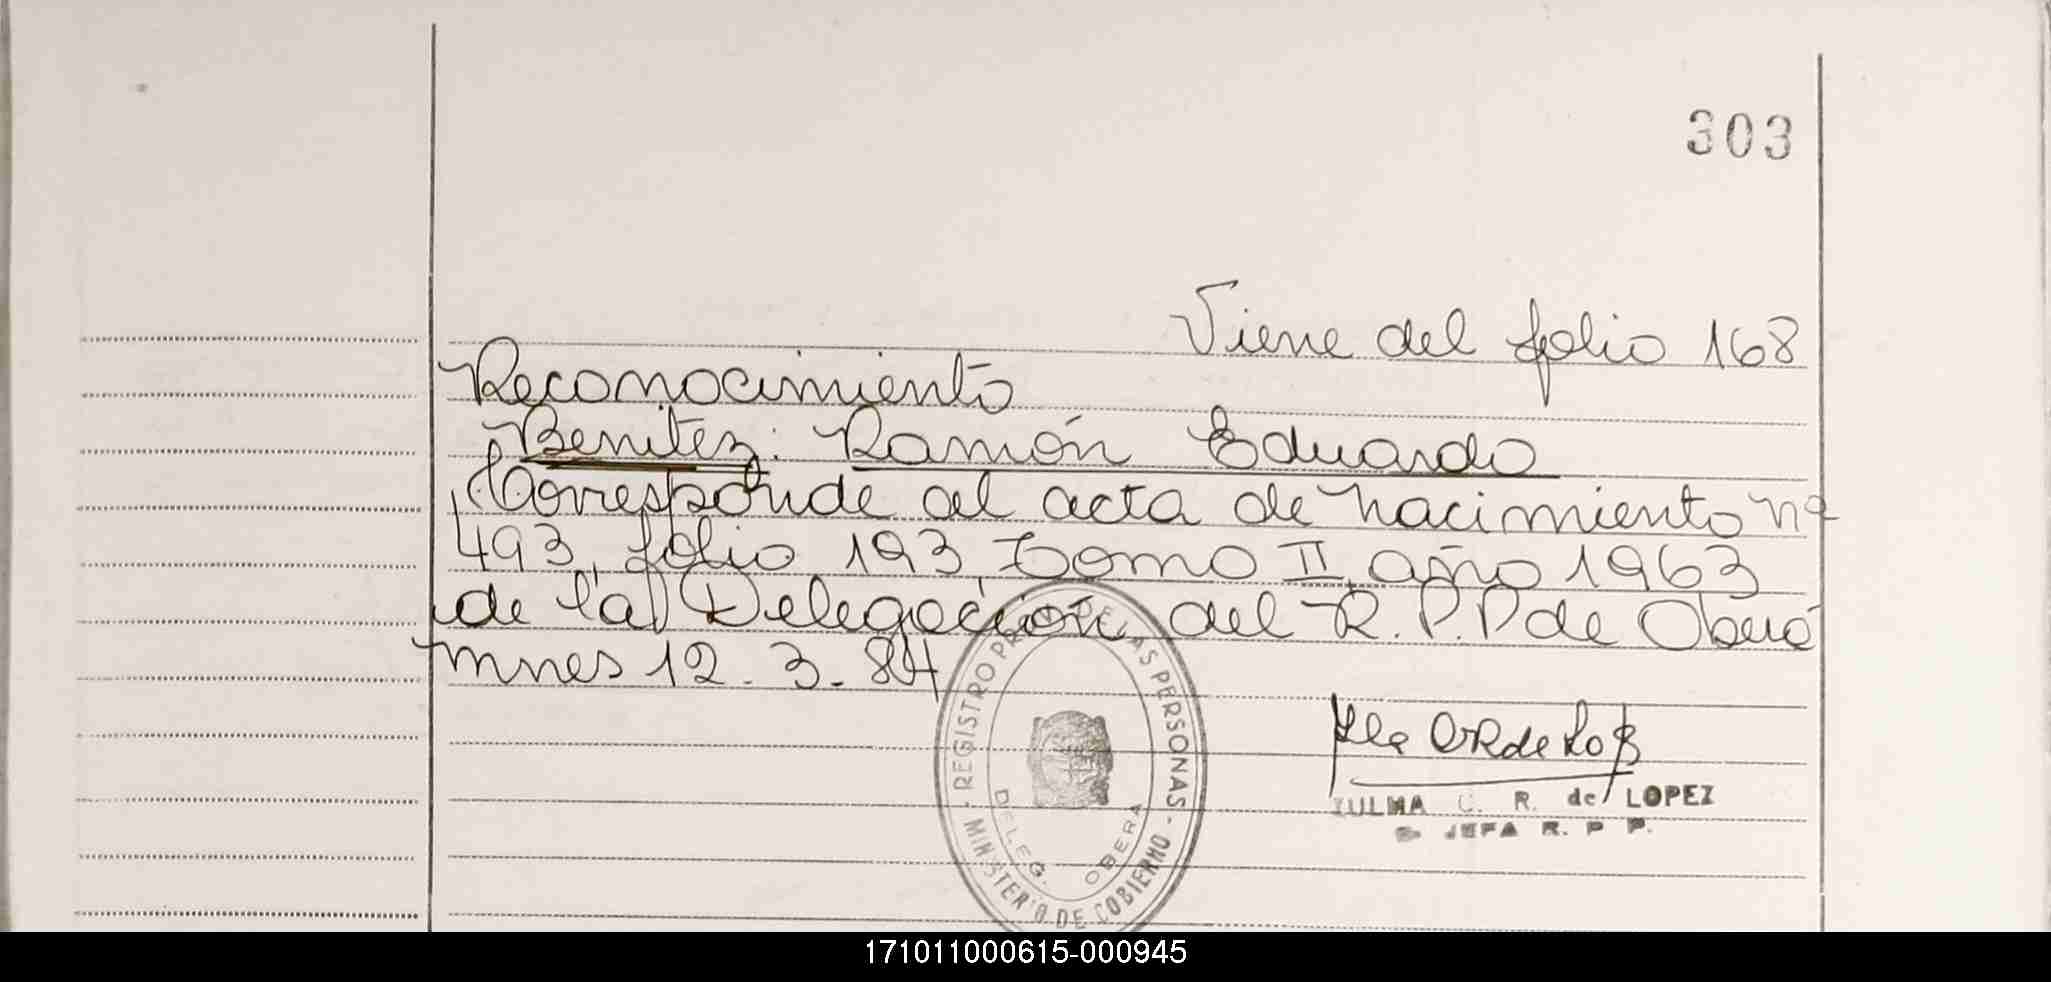 303
Viene del folio 168
Reconocimiento
Benitez: Ramón Eduardo
Corresponde al acta de nacimiento nº
493, folio 193, Tomo II, año 1963
de la Delegación del R.P.P de Oberá
Mnes 12.3.84
ZULMA C. R. de LOPEZ
JEFA R. P. P.
- REGISTRO PROV. DE LAS PERSONAS -
MINISTERIO DE GOBIERNO
DELEG. OBERA
171011000615-000945